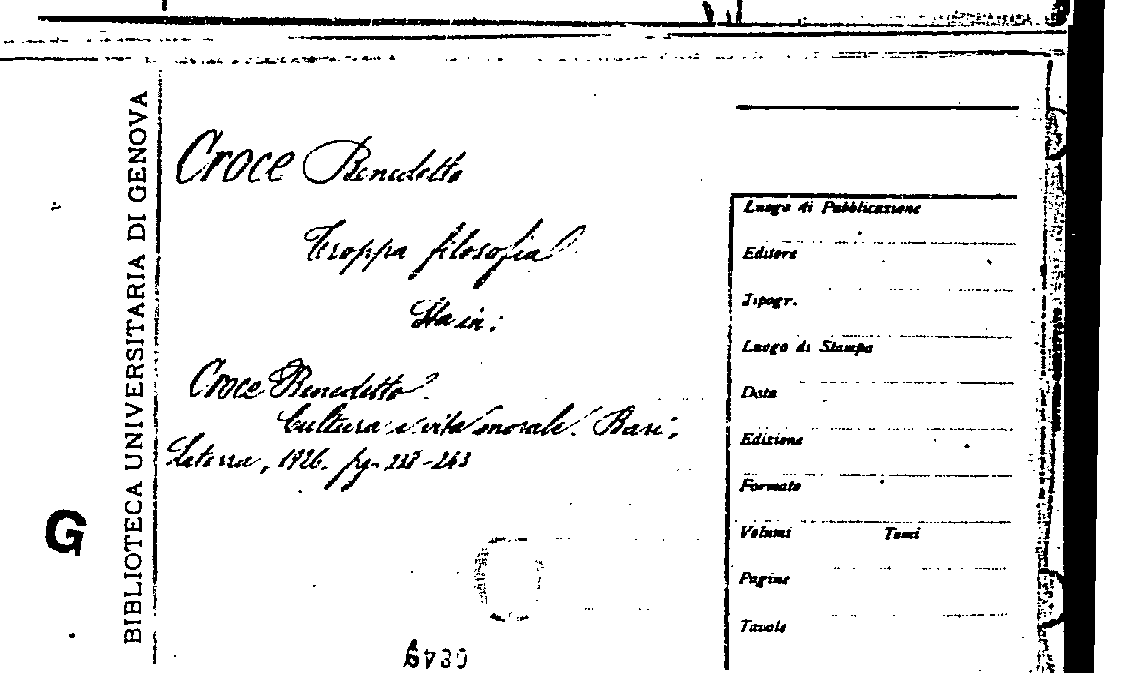 BIBLIOTECA UNIVERSITARIA DI GENOVA
G
Croce Benedetto
Troppa filosofia
Sta in:
Croce Benedetto.
Cultura e vita morale. Bari,
Laterza, 1926. pg.
Luogo di Pubblicazione
Editore
Tipogr.
Luogo di Stampa
Data
Edizione
Formato
Volumi Tomi
Pagine
Tavole